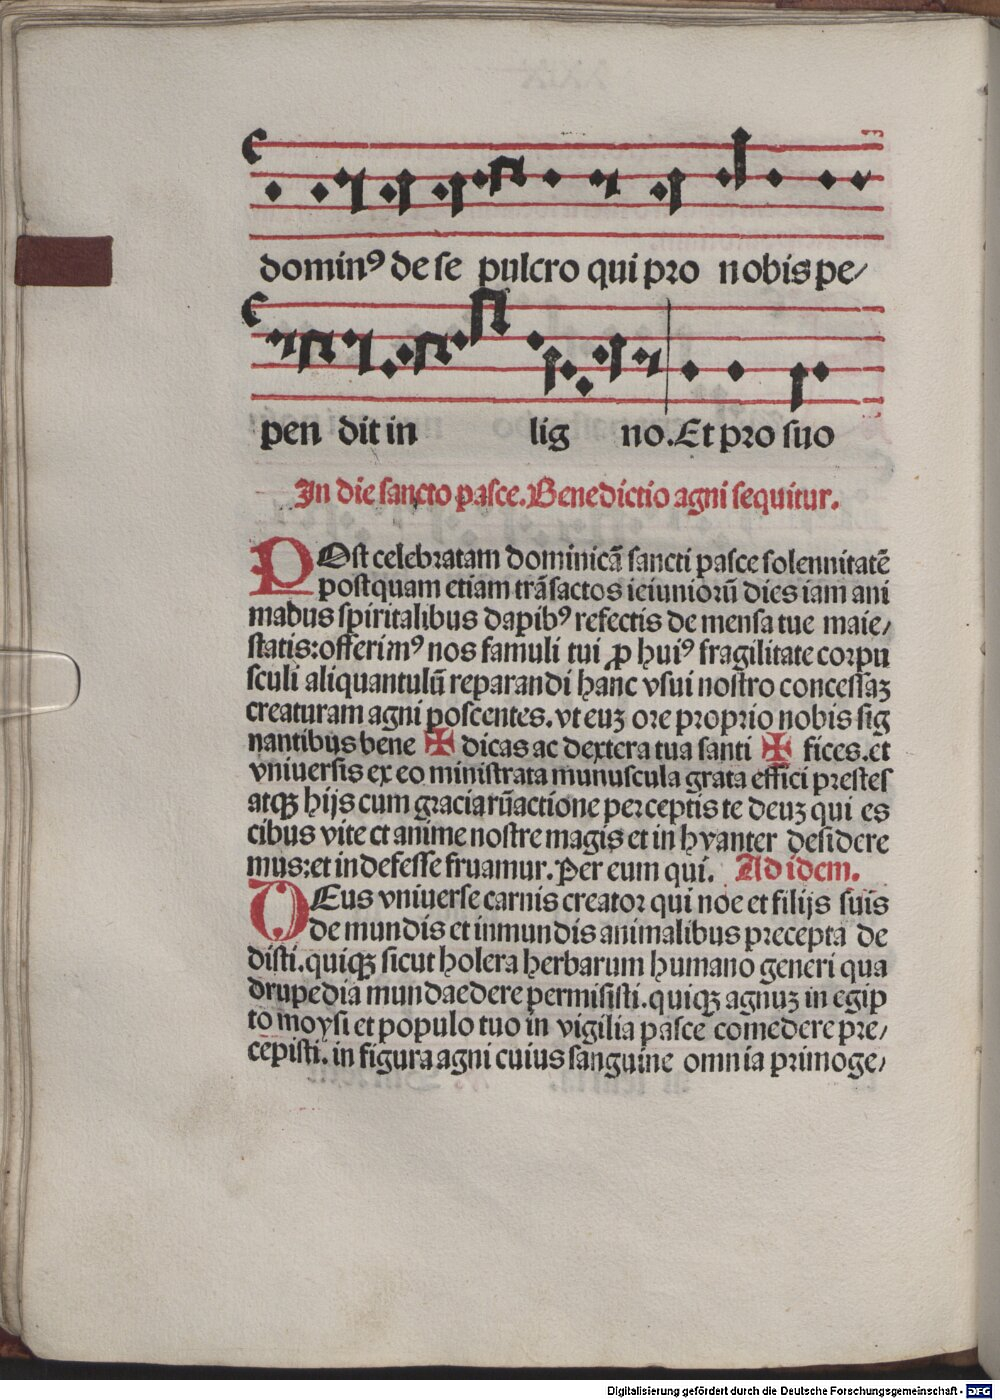 dominꝰ de se pulcro qui pro nobis pe⸗
pen dit in lig no. Et pro suo
In die sancto pasce. Benedictio agni sequitur.
POst celebratam dominicā sancti pasce solennitatē
postquam etiam trāsactos ieiuniorū dies iam ani
mabus spiritalibus dapibꝰ refectis de mensa tue maie⸗
statis: offerimꝰ nos famuli tui ꝓ huiꝰ fragilitate corpu
sculi aliquantulū reparandi hanc vsui nostro concessaꝫ
creaturam agni poscentes. vt euꝫ ore proprio nobis sig
nantibus bene ✠ dicas ac dextera tua santi ✠ fices. et
vniuersis ex eo ministrata munuscula grata effici prestes
atqꝫ hijs cum graciarūactione perceptis te deuꝫ qui es
cibus vite et anime nostre magis et in hyanter desidere
mus: et indefesse fruamur. Per eum qui. Ad idem.
DEus vniuerse carnis creator qui noe et filijs suis
de mundis et inmundis animalibus precepta de
disti. quiqꝫ sicut holera herbarum humano generi qua
drupedia munda edere permisisti. quiqꝫ agnuꝫ in egip
to moysi et populo tuo in vigilia pasce comedere pre⸗
cepisti. in figura agni cuius sanguine omnia primoge⸗
Digitalisierung gefördert durch die Deutsche Forschungsgemeinschaft - DFG